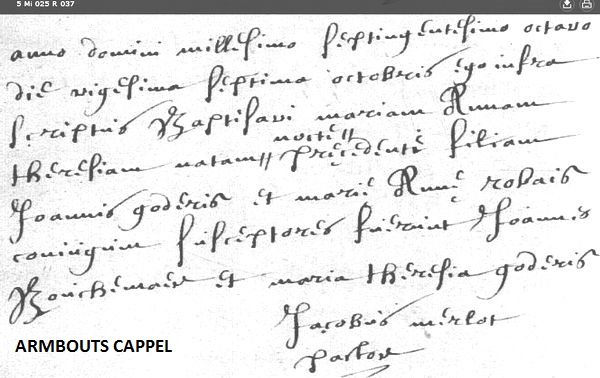 5 Mi 025 R 037
anno domini millesimo septingentesimo octavo
die vigesima septima octobris ego infra
scriptus Baptisavi mariam Annam
nocte //
theresiam natam // precedente filiam
Joannis goderis et marie Anne robais
coniugum susceptores fuerunt Joannis
Bouchemaer et maria theresia goderis
Jacobus merlot
pastor
ARMBOUTS CAPPEL